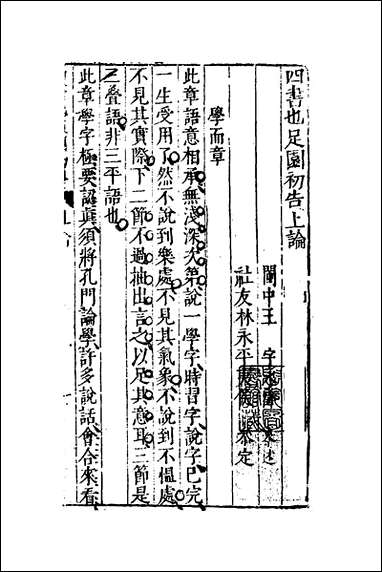 四書也足園初告上論
閩中王宇
社友林永平
叅定
學而章
此章語意相承無淺深次第說一學字時習字說字已完
一生受用了然不說到樂處不見其氣象不說到不慍處
不見其實際下二節不過抽出言之以足其意耳三節是
三叠語非三平語也
此章學字極要認眞須將孔門論學許多說話會合來看